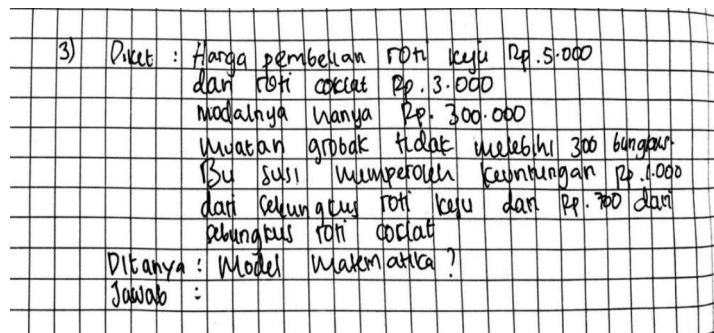 3) Diket : Harga pembelian roti keju Rp.5.000
dan roti coklat Rp. 3.000
modalnya hanya Rp. 300.000
Muatan grobak tidak melebihi 300 bungkus.
Bu susi memperoleh keuntungan Rp.1.000
dari sebungkus roti keju dan Rp. 700 dari
sebungkus roti coklat
Ditanya : Model Matematika ?
Jawab :